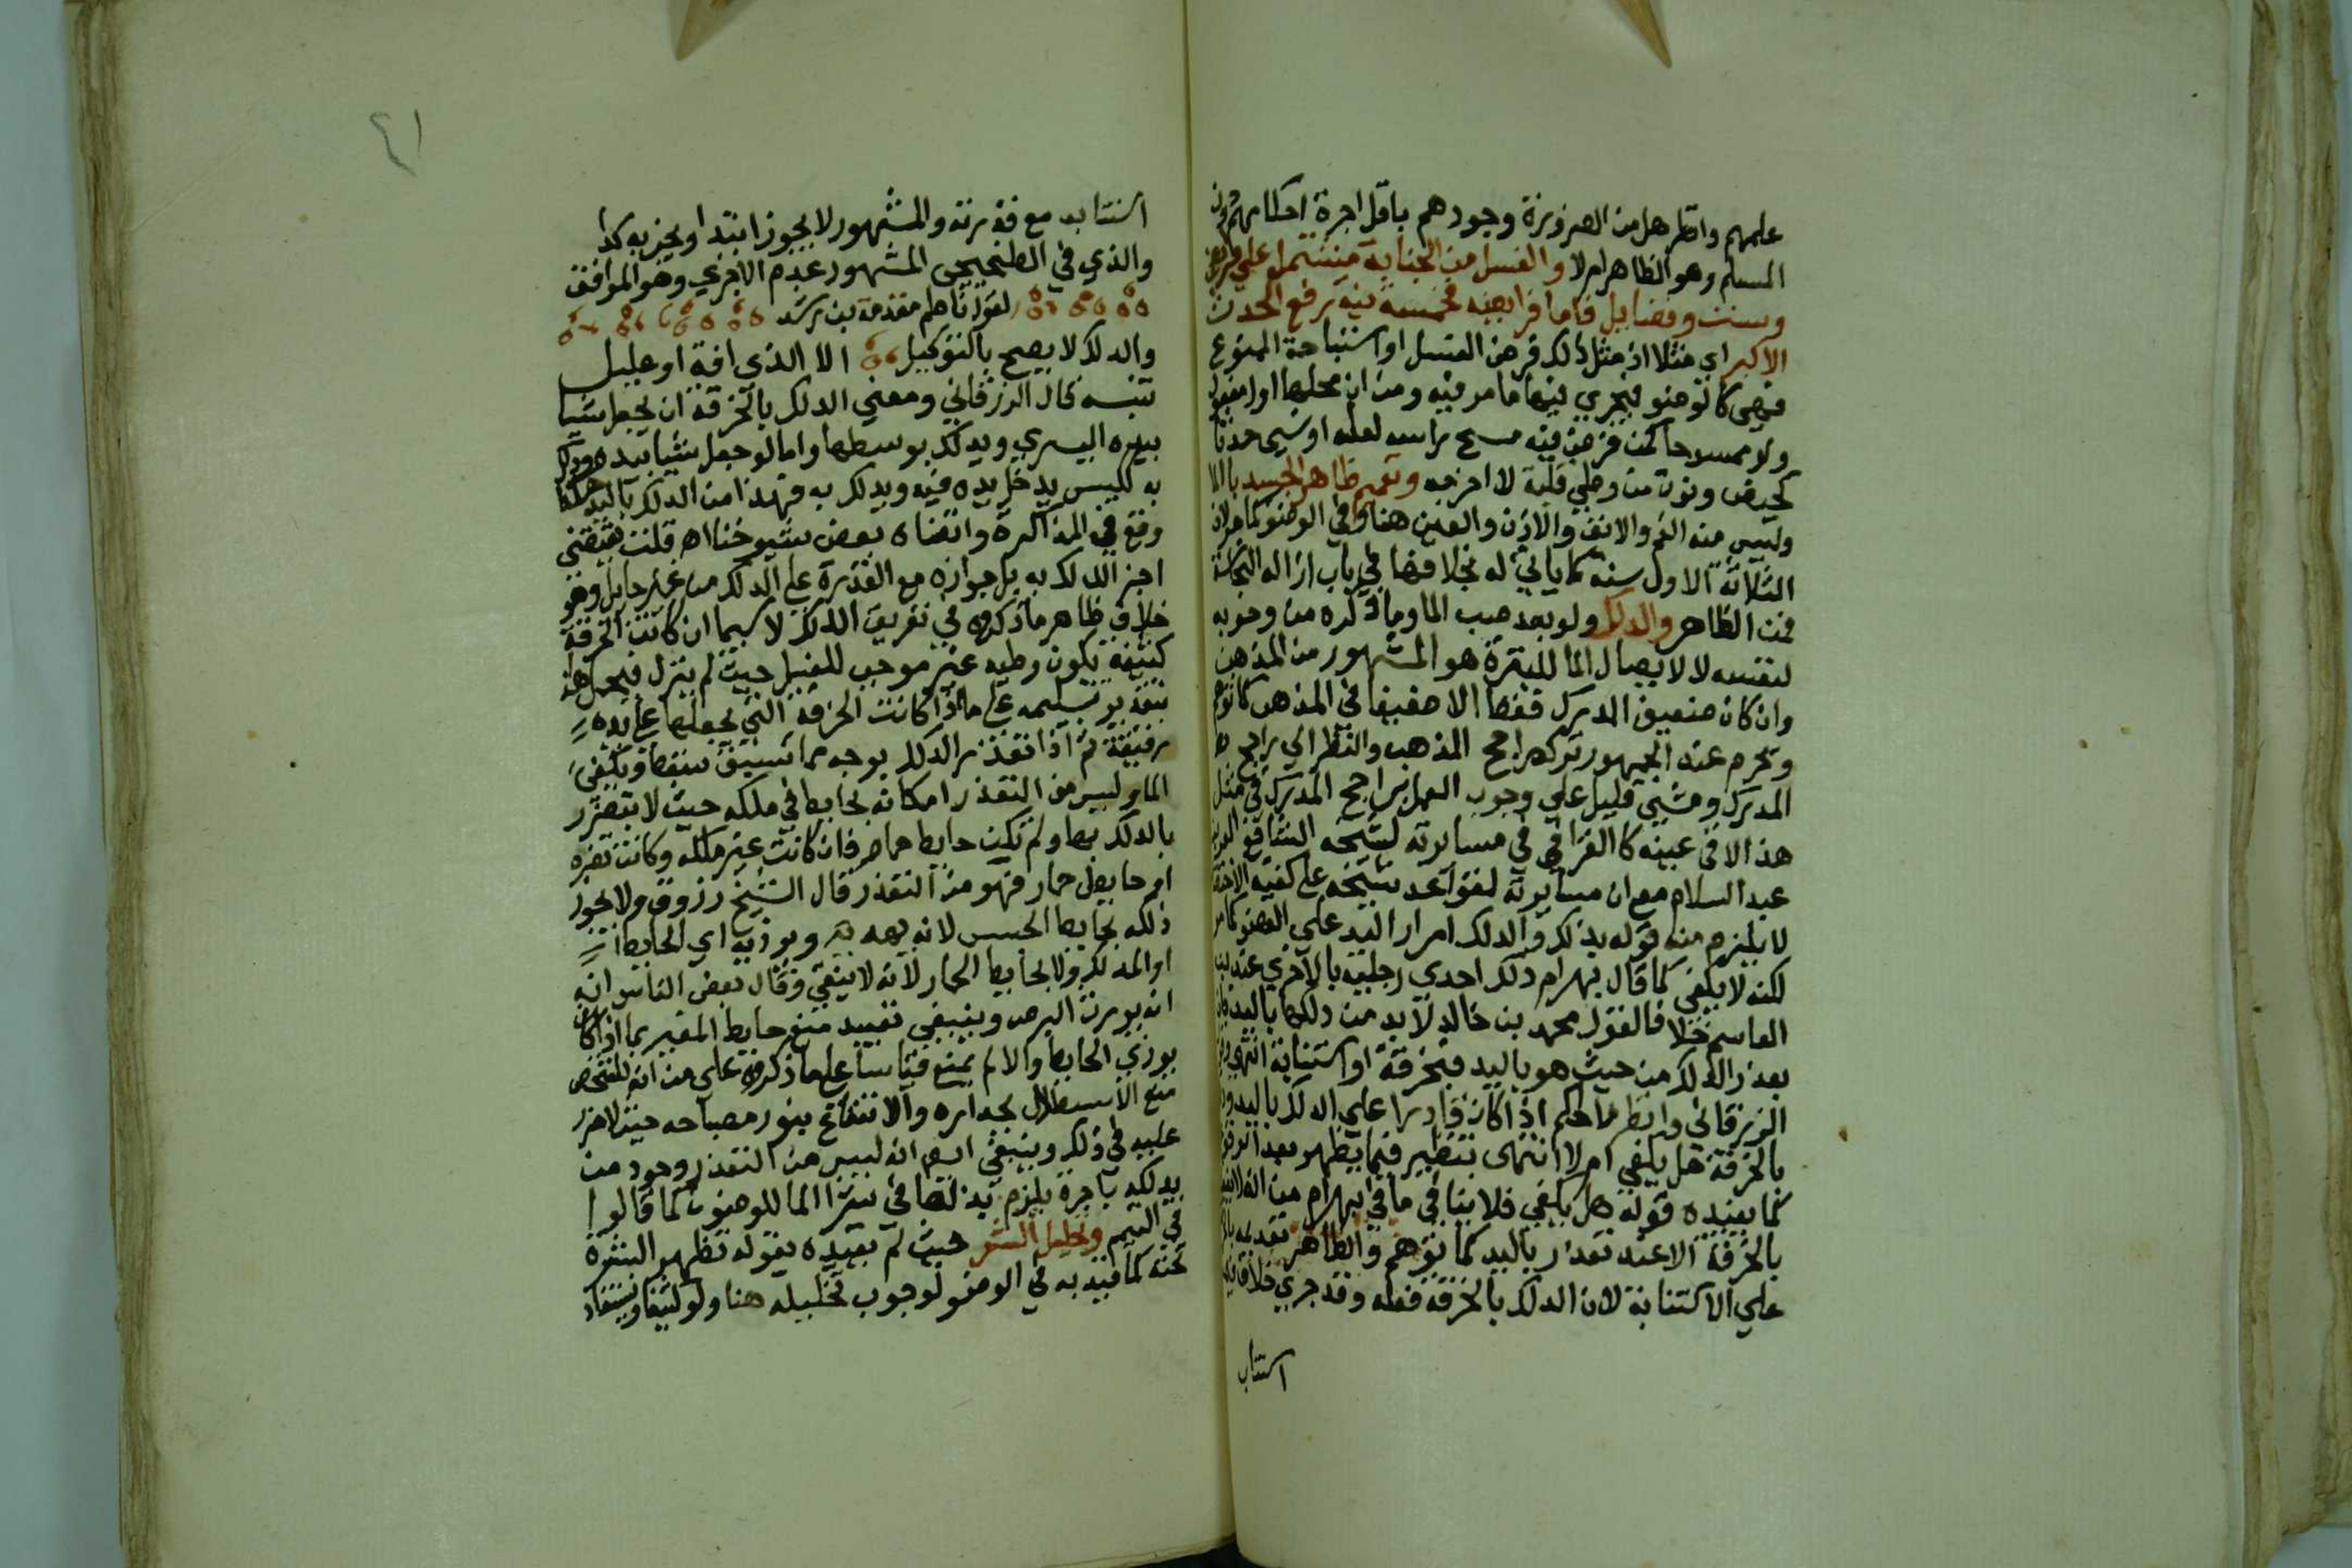 عليهم وانظر هل من الضرورة وجودهم باقل اجرة احكامهم دون
المسلم وهو الظاهر ام لا والغسل من الجنابة مشتمل علي فرايض
وسنن وفضايل فاما فرايضه فخمسة نية رفع الحدث
الاكبر اي مثلا اذ مثل ذلك فرض الغسل او استباحة الممنوع
فهي كالوضو فيجري فيها ما مر فيه ومن ان محلها اول مفعول
ولو ممسوحا كمن فرض فيه مسح راسه لعلة او نسي حدثا
كحيض ونوت من وطي قلبة لا اخرجه وتعميم ظاهر الجسد بالما
وليس منه الفم والانف والاذن والعين هنا وفي الوضو كما مر لان
الثلاثة الاول سنة كما ياتي له بخلافها في باب ازالة النجاسة
فمن الظاهر والدلك ولو بعد صب الما وما ذكره من وجوبه
لنفسه لا لايصال الما للبشرة هو المشهور من المذهب
وان كان ضعيف المدرك فقط الا ضعيفا في المذهب كما توهم
وتحرم عند الجمهور ترك راجح المذهب والنظر الي راجح
المدرك ومشي قليل علي وجوب العمل براجح المدرك في مثل
هذا الا في عينه كالقرافي في مسايرته لشيخه الشافعي العز بن
عبد السلام مع ان مسايرته لقواعد شيخه علي كفيه
لا يلزم منه قوله بذلك والدلك امرار اليد علي العضو كما مر
لكنه لا يكفي كما قال بهرام دلك احدي رجليه بالاخري عند ابن
القاسم خلافا لقول محمد بن خالد لابد من دلكها باليد فان
تعذر الدلك من حيث هو باليد فبخرقة او استنابة انتهي
الزرقاني وانظر ما حكم اذا كان قادرا علي الدلك باليد ودلك
بالخرقة هل يكفي ام لا انتهى بتنظير فيما يظهر بعد الوقوع
كما يفيده قوله هل يكفي فلا ينافي ما في بهرام من انه لا يدلك
بالخرقة الا عند تعذر باليد كما توهم والظاهر تقديمه بالخرقة
علي الاستنابة لان الدلك بالخرقة فعله وقد جري خلاف في
استناب
٤١
استنابه مع قدرته والمشهور لا يجوز ابتدا ويجزيه كذا
والذي في الطخيخي المشهور عدم الاجزي وهو الموافق
لقول ناظم مقدمة بن رشد
والدلك لا يصح بالتوكيل الا لذي افة او عليل
تنبيه قال الزرقاني ومعني الدلك بالخرقة ان يجعل شيا
بيده اليسري ويدلك بوسطها واما لو جعل شيا بيده ودلك
به ككيس يدخل يده فيه ويدلك به فهذا من الدلك باليد كذا
وقع في المذاكرة وارتضاه بعض شيوخنا اه قلت فيقتضي
اجز الدلك به بل جوازه مع القدرة علي الدلك من غير حايل وهو
خلاف ظاهر ما ذكروه في تعريف الدلك لا سيما ان كانت الخرقة
كثيفة يكون وطيه غير موجب للغسل حيث لم ينزل فيحمل هذا
بتقدير تسليمه علي ما اذا كانت الخرقة التي يجعلها علي يده
رقيقة ثم اذا تعذر الدلك بوجه مما سبق سقط ويكفي
الما وليس من التعذر امكانه بحايط في ملكه حيث لا يتضرر
بالدلك بها ولم تكن حايط حمام فان كانت غير ملكه وكانت تضره
او حايط حمار فهو من التعذر قال الشيخ زروق ولا يجوز
ذلك بحايط الحبس لانه يهده ويوذيه اي الحايط
او المدلك ولا بحايط الحمار لانه لا ينقي وقال بعض الناس انه
انه يورث البرص وينبغي تقييد منع حايط الغير بما اذا كان
يوذي الحايط والا لم يمنع قياسا علي ما ذكروه علي من انه للشخص
منع الاستظلال بجداره والانتفاع بنور مصباحه حيث لا ضرر
عليه في ذلك وينبغي ايضا انه ليس من التعذر وجود من
يدلكه باجرة يلزم بذلها في شرا الما للوضو كما قالوا
في التيمم وتخليل الشعر حيث لم يقيده بقوله تظهر البشرة
تحته كما قيد به في الوضو لوجوب تخليله هنا ولو كثيفا ويستفاد